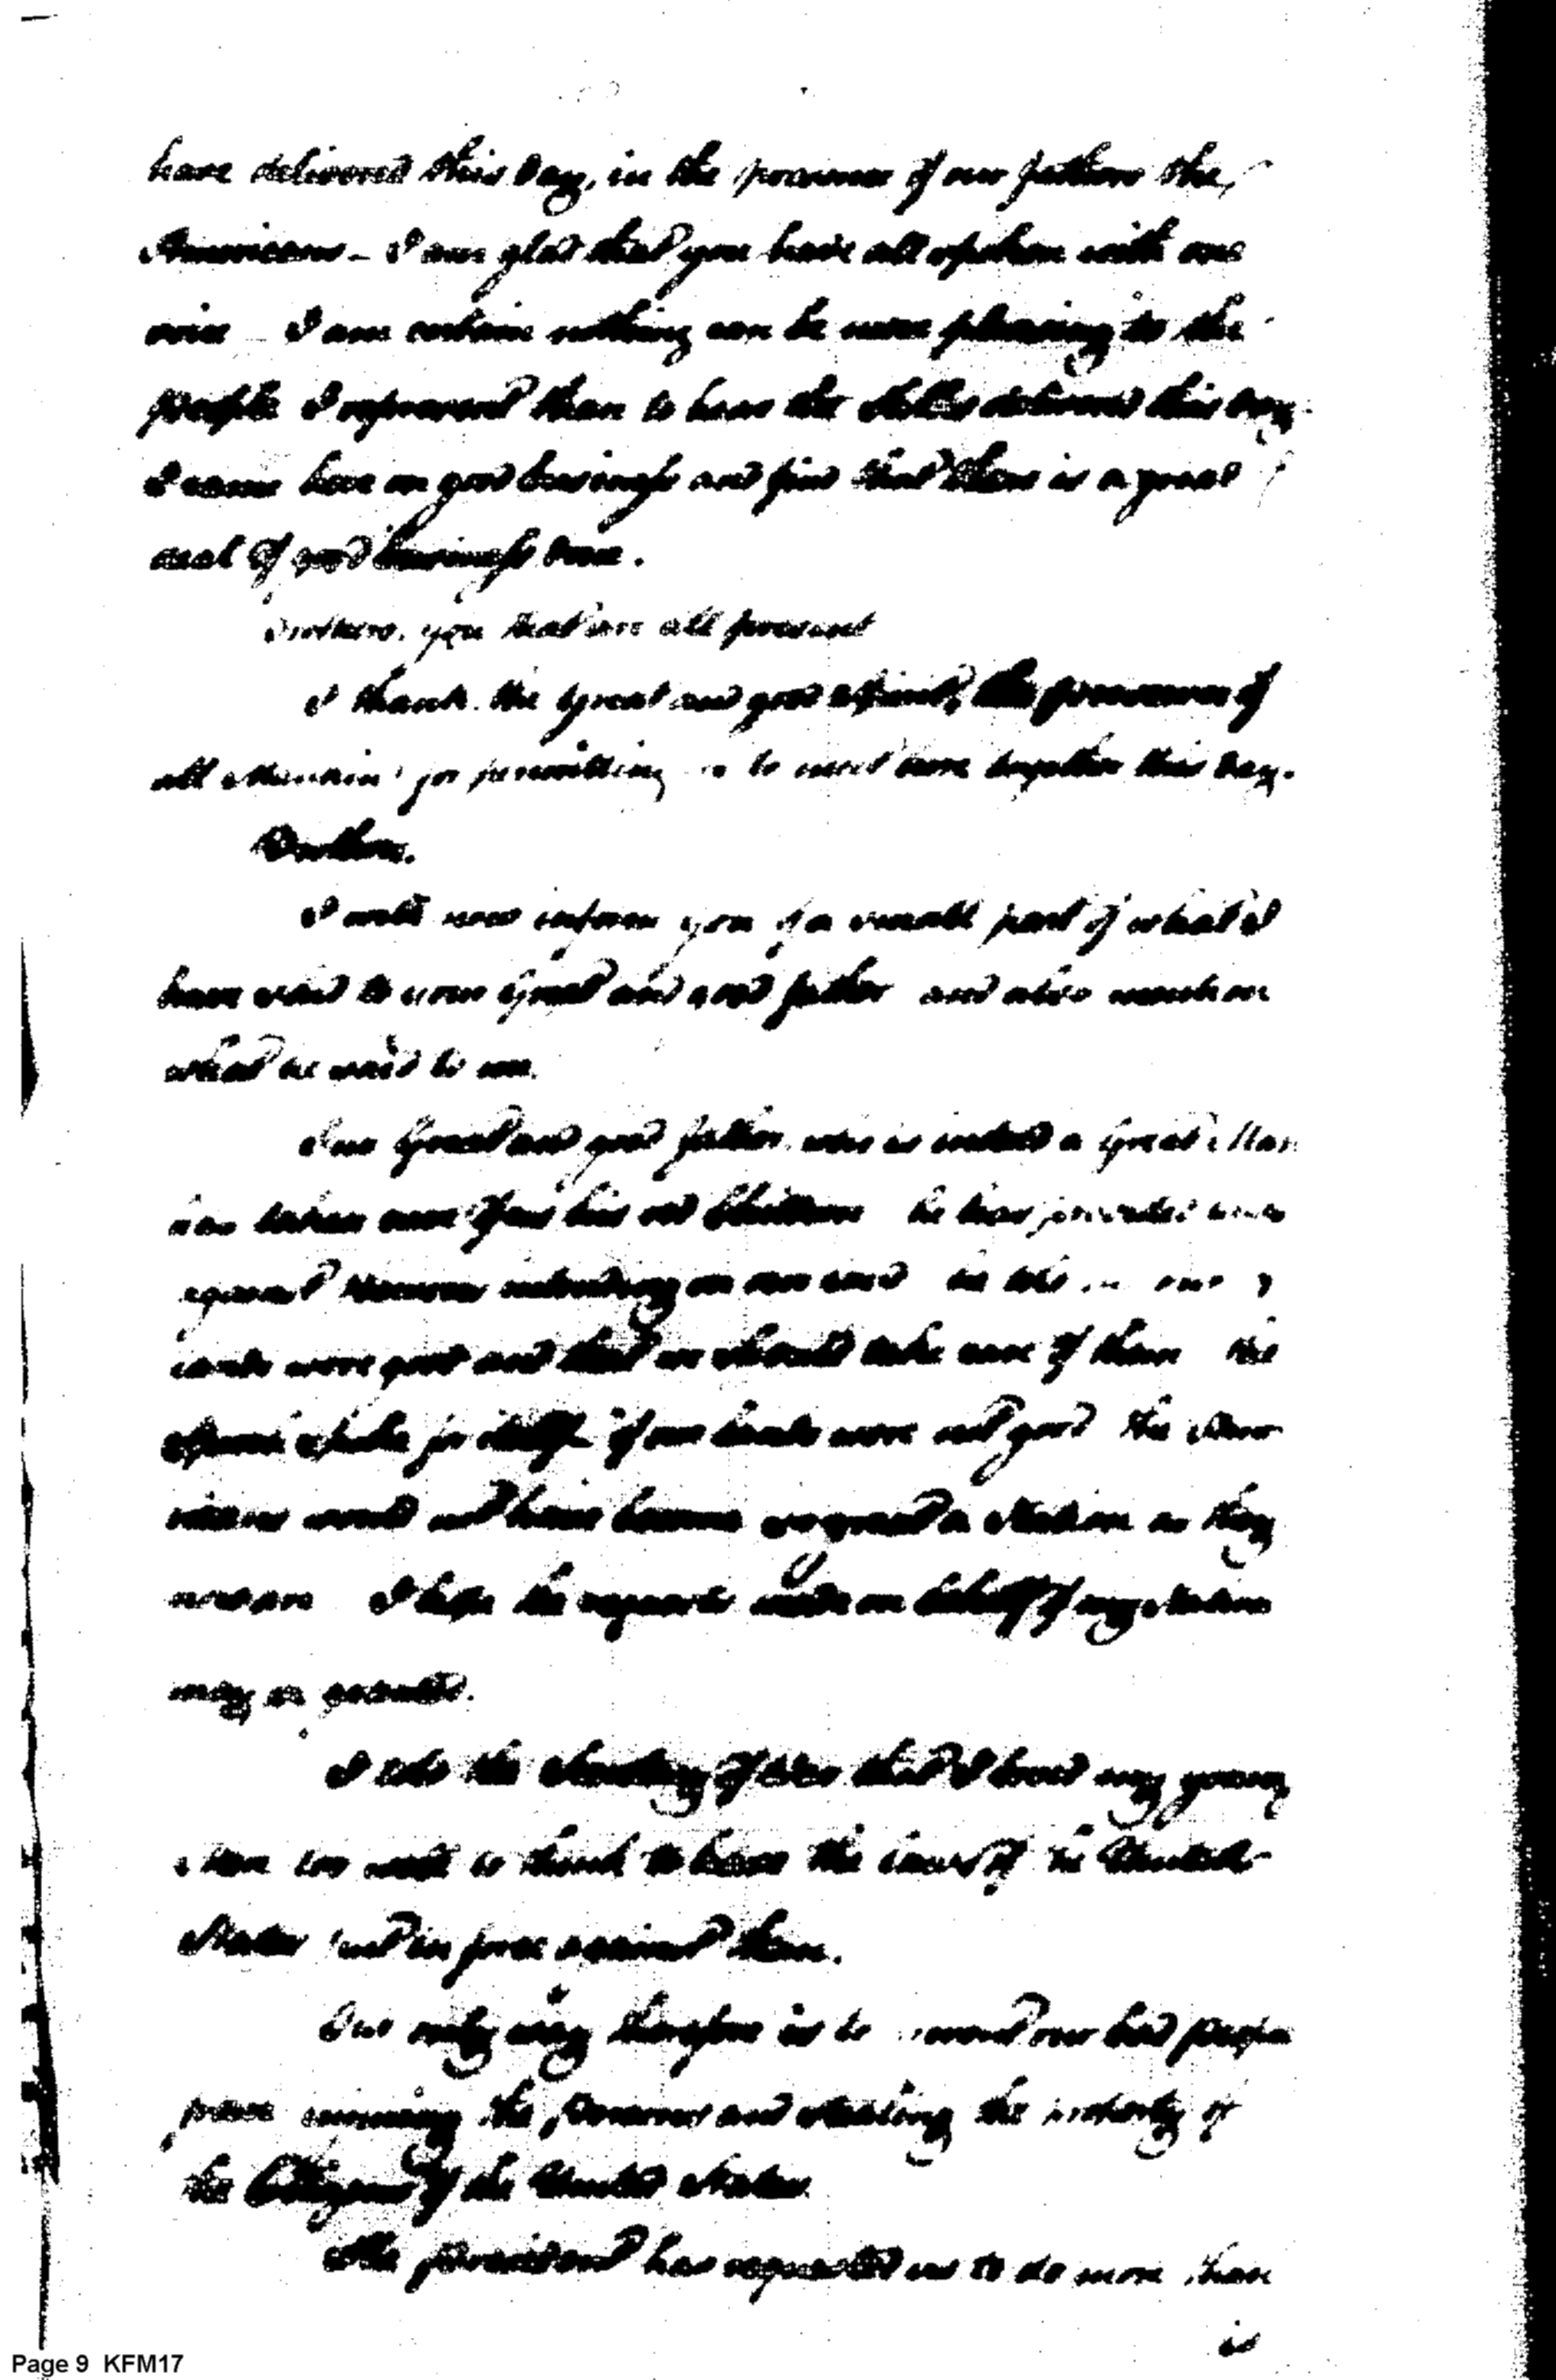 have delivered this Day, in the presence of our fathers the
Americans - I am glad that you have all spoken with one
voice - I am certain nothing can be more pleasing to the
people I represent than to hear the talks delivered this day.
I came here on good business and find that there is a great
deal of good business done.
Brothers, you that are all present
I thank the Great and good Spirit, the preserver of
all Mankind for permitting us to meet here together this Day.
Brothers.
I will now inform you of a small part of what I
have said to your Great and good father and also mention
what he said to me.
Our Great and good father, who is indeed a Great Man
has taken care of us his red Children he has provided
against intruding on our land he told our
lands were good and that we should take care of them the
Speech Spoke for itself if our lands were not good the Ame
ricans would not have become so great a Nation as they
now are I hope the requests made on behalf of my Nation
may be granted.
I told the Secretary of War that I loved my young
Men too well to think to have the laws of the United
States put in force against them.
Our only way therefore is to our bad people
from injuring the persons and stealing the property of
the Citizens of the United States
The president has requested us to do more than
is
Page 9 KFM17